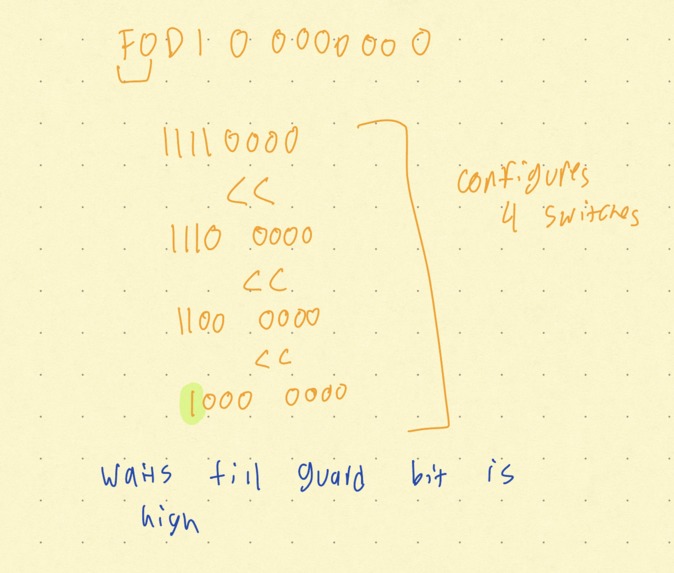 F0D1 0 0000000 0
11110000
<<
1110 0000
<<
1100 0000
<<
1000 0000
configures
4 switches
waits till guard bit is
high